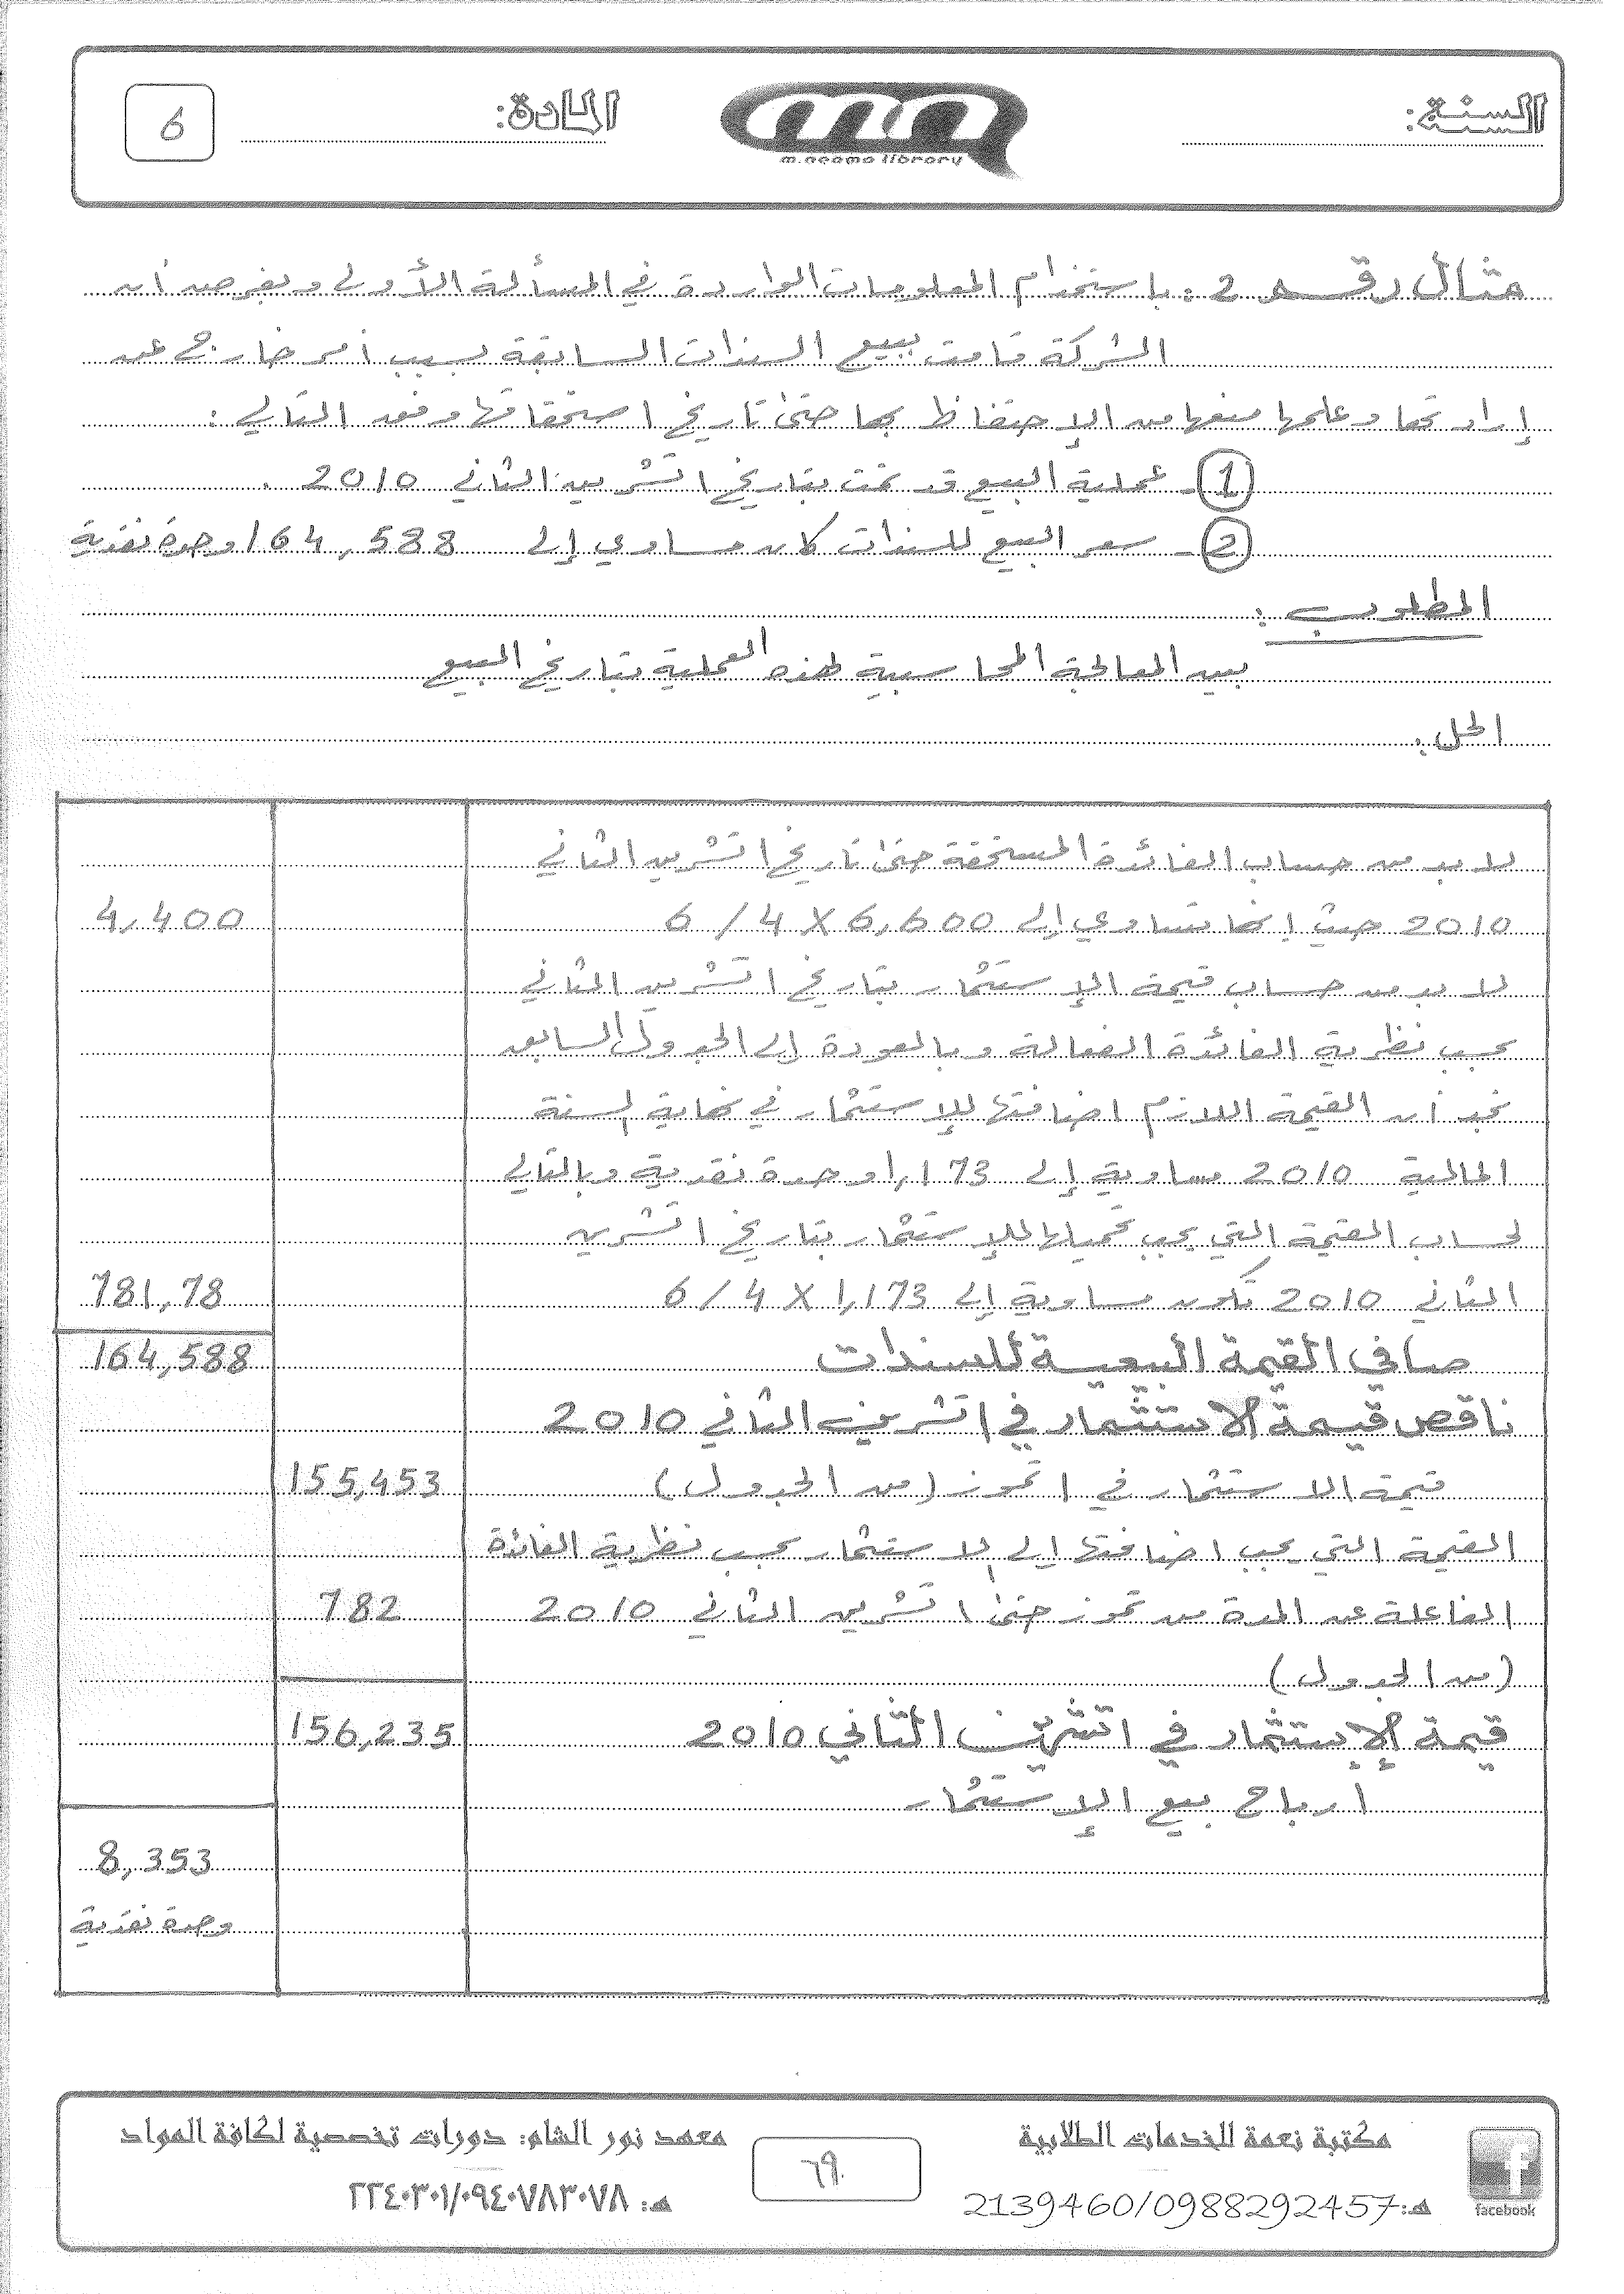 السنة:
m.neama library
المادة:
6
مثال رقم 2: باستخدام المعلومات الواردة في المسألة الأولى وبفرض أن
الشركة قامت ببيع السندات السابقة بسبب أمر خارج عن
إرادتها وعلمها منعها من الإحتفاظ بها حتى تاريخ استحقاقها وفق التالي:
1- عملية البيع قد تمت بتاريخ 1 تشرين الثاني 2010.
2- سعر البيع للسندات كان مساوي إلى 164,588 وحدة نقدية
المطلوب:
بين المعالجة المحاسبية لهذه العملية بتاريخ البيع
الحل:
لا بد من حساب الفائدة المستحقة حتى تاريخ 1 تشرين الثاني
2010 حيث إنها تساوي إلى 6,600 X 4 / 6 4,400
لا بد من حساب قيمة الإستثمار بتاريخ 1 تشرين الثاني
بحسب نظرية الفائدة الفعالة وبالعودة إلى الجدول السابق
نجد أن القيمة اللازم اضافتها للإستثمار في نهاية السنة
المالية 2010 مساوية إلى 1,173 وحدة نقدية وبالتالي
لحساب القيمة التي يجب تحميلها للإستثمار بتاريخ 1 تشرين
الثاني 2010 تكون مساوية إلى 1,173 X 4 / 6 781,78
صافي القيمة البيعية للسندات 164,588
ناقص قيمة الاستثمار في 1 تشرين الثاني 2010
قيمة الاستثمار في 1 تموز (من الجدول) 155,453
القيمة التي يجب اضافتها الى الاستثمار بحسب نظرية الفائدة
الفاعلة عن المدة من تموز حتى 1 تشرين الثاني 2010 782
(من الجدول)
قيمة الإستثمار في 1 تشرين الثاني 2010 156,235
ارباح بيع الإستثمار
8,353
وحدة نقدية
facebook
مكتبة نعمة للخدمات الطلابية
هـ: 2139460/0988292457
٦٩
معهد نور الشام: دورات تخصصية لكافة المواد
هـ: ٢٢٤٠٣٠١/٠٩٤٠٧٨٣٠٧٨